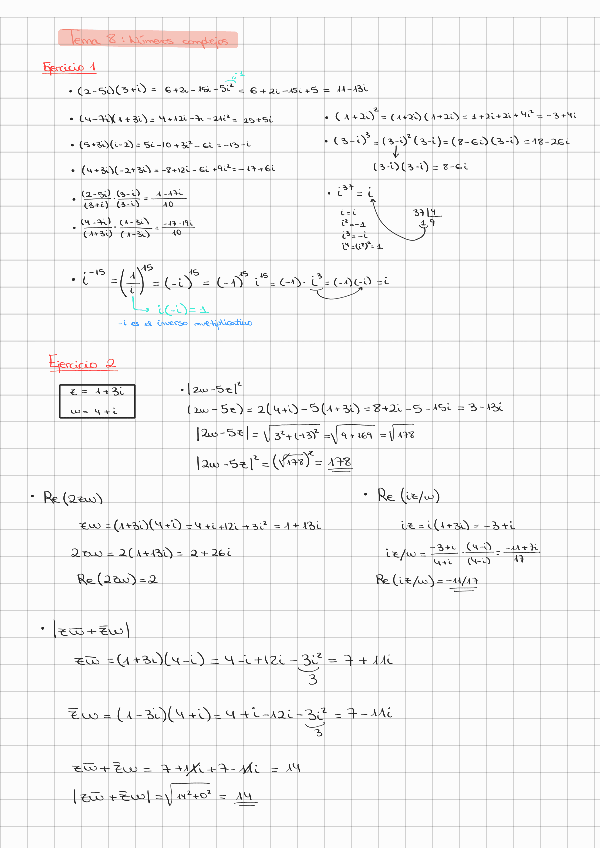 Tema 8: Números complejos
Ejercicio 1
• (2-5i)(3+i) = 6+2i-15i-5i² = 6+2i-15i+5 = 11-13i
i²-1
• (4-7i)(1+3i) = 4+12i-7i-21i² = 25+5i
• (1+2i)² = (1+2i)(1+2i) = 1+2i+2i+4i² = -3+4i
• (5+3i)(i-2) = 5i-10+3i²-6i = -13-i
• (3-i)³ = (3-i)²(3-i) = (8-6i)(3-i) = 18-26i
(3-i)(3-i) = 8-6i
• (4+3i)(-2+3i) = -8+12i-6i+9i² = -17+6i
• (2-5i)/(3+i) · (3-i)/(3-i) = (1-17i)/10
• (4-7i)/(1+3i) · (1-3i)/(1-3i) = (-17-19i)/10
• i³⁷ = i
i = i
i² = -1
i³ = -i
i⁴ = (i²)² = 1
37 | 4
1 9
• i⁻¹⁵ = (1/i)¹⁵ = (-i)¹⁵ = (-1)¹⁵ i¹⁵ = (-1) · i³ = (-1)(-i) = i
i(-i) = 1
-i es el inverso multiplicativo
Ejercicio 2
z = 1+3i
w = 4+i
• |2w-5z|²
(2w-5z) = 2(4+i)-5(1+3i) = 8+2i-5-15i = 3-13i
|2w-5z| = √(3²+(-13)²) = √(9+169) = √178
|2w-5z|² = (√178)² = 178
• Re(2zw)
zw = (1+3i)(4+i) = 4+i+12i+3i² = 1+13i
2zw = 2(1+13i) = 2+26i
Re(2zw) = 2
• Re(iz/w)
iz = i(1+3i) = -3+i
iz/w = (-3+i)/(4+i) · (4-i)/(4-i) = (-11+7i)/17
Re(iz/w) = -11/17
• |zw̅+z̅w|
zw̅ = (1+3i)(4-i) = 4-i+12i-3i² = 7+11i
3
z̅w = (1-3i)(4+i) = 4+i-12i-3i² = 7-11i
3
zw̅+z̅w = 7+11i+7-11i = 14
|zw̅+z̅w| = √(14²+0²) = 14